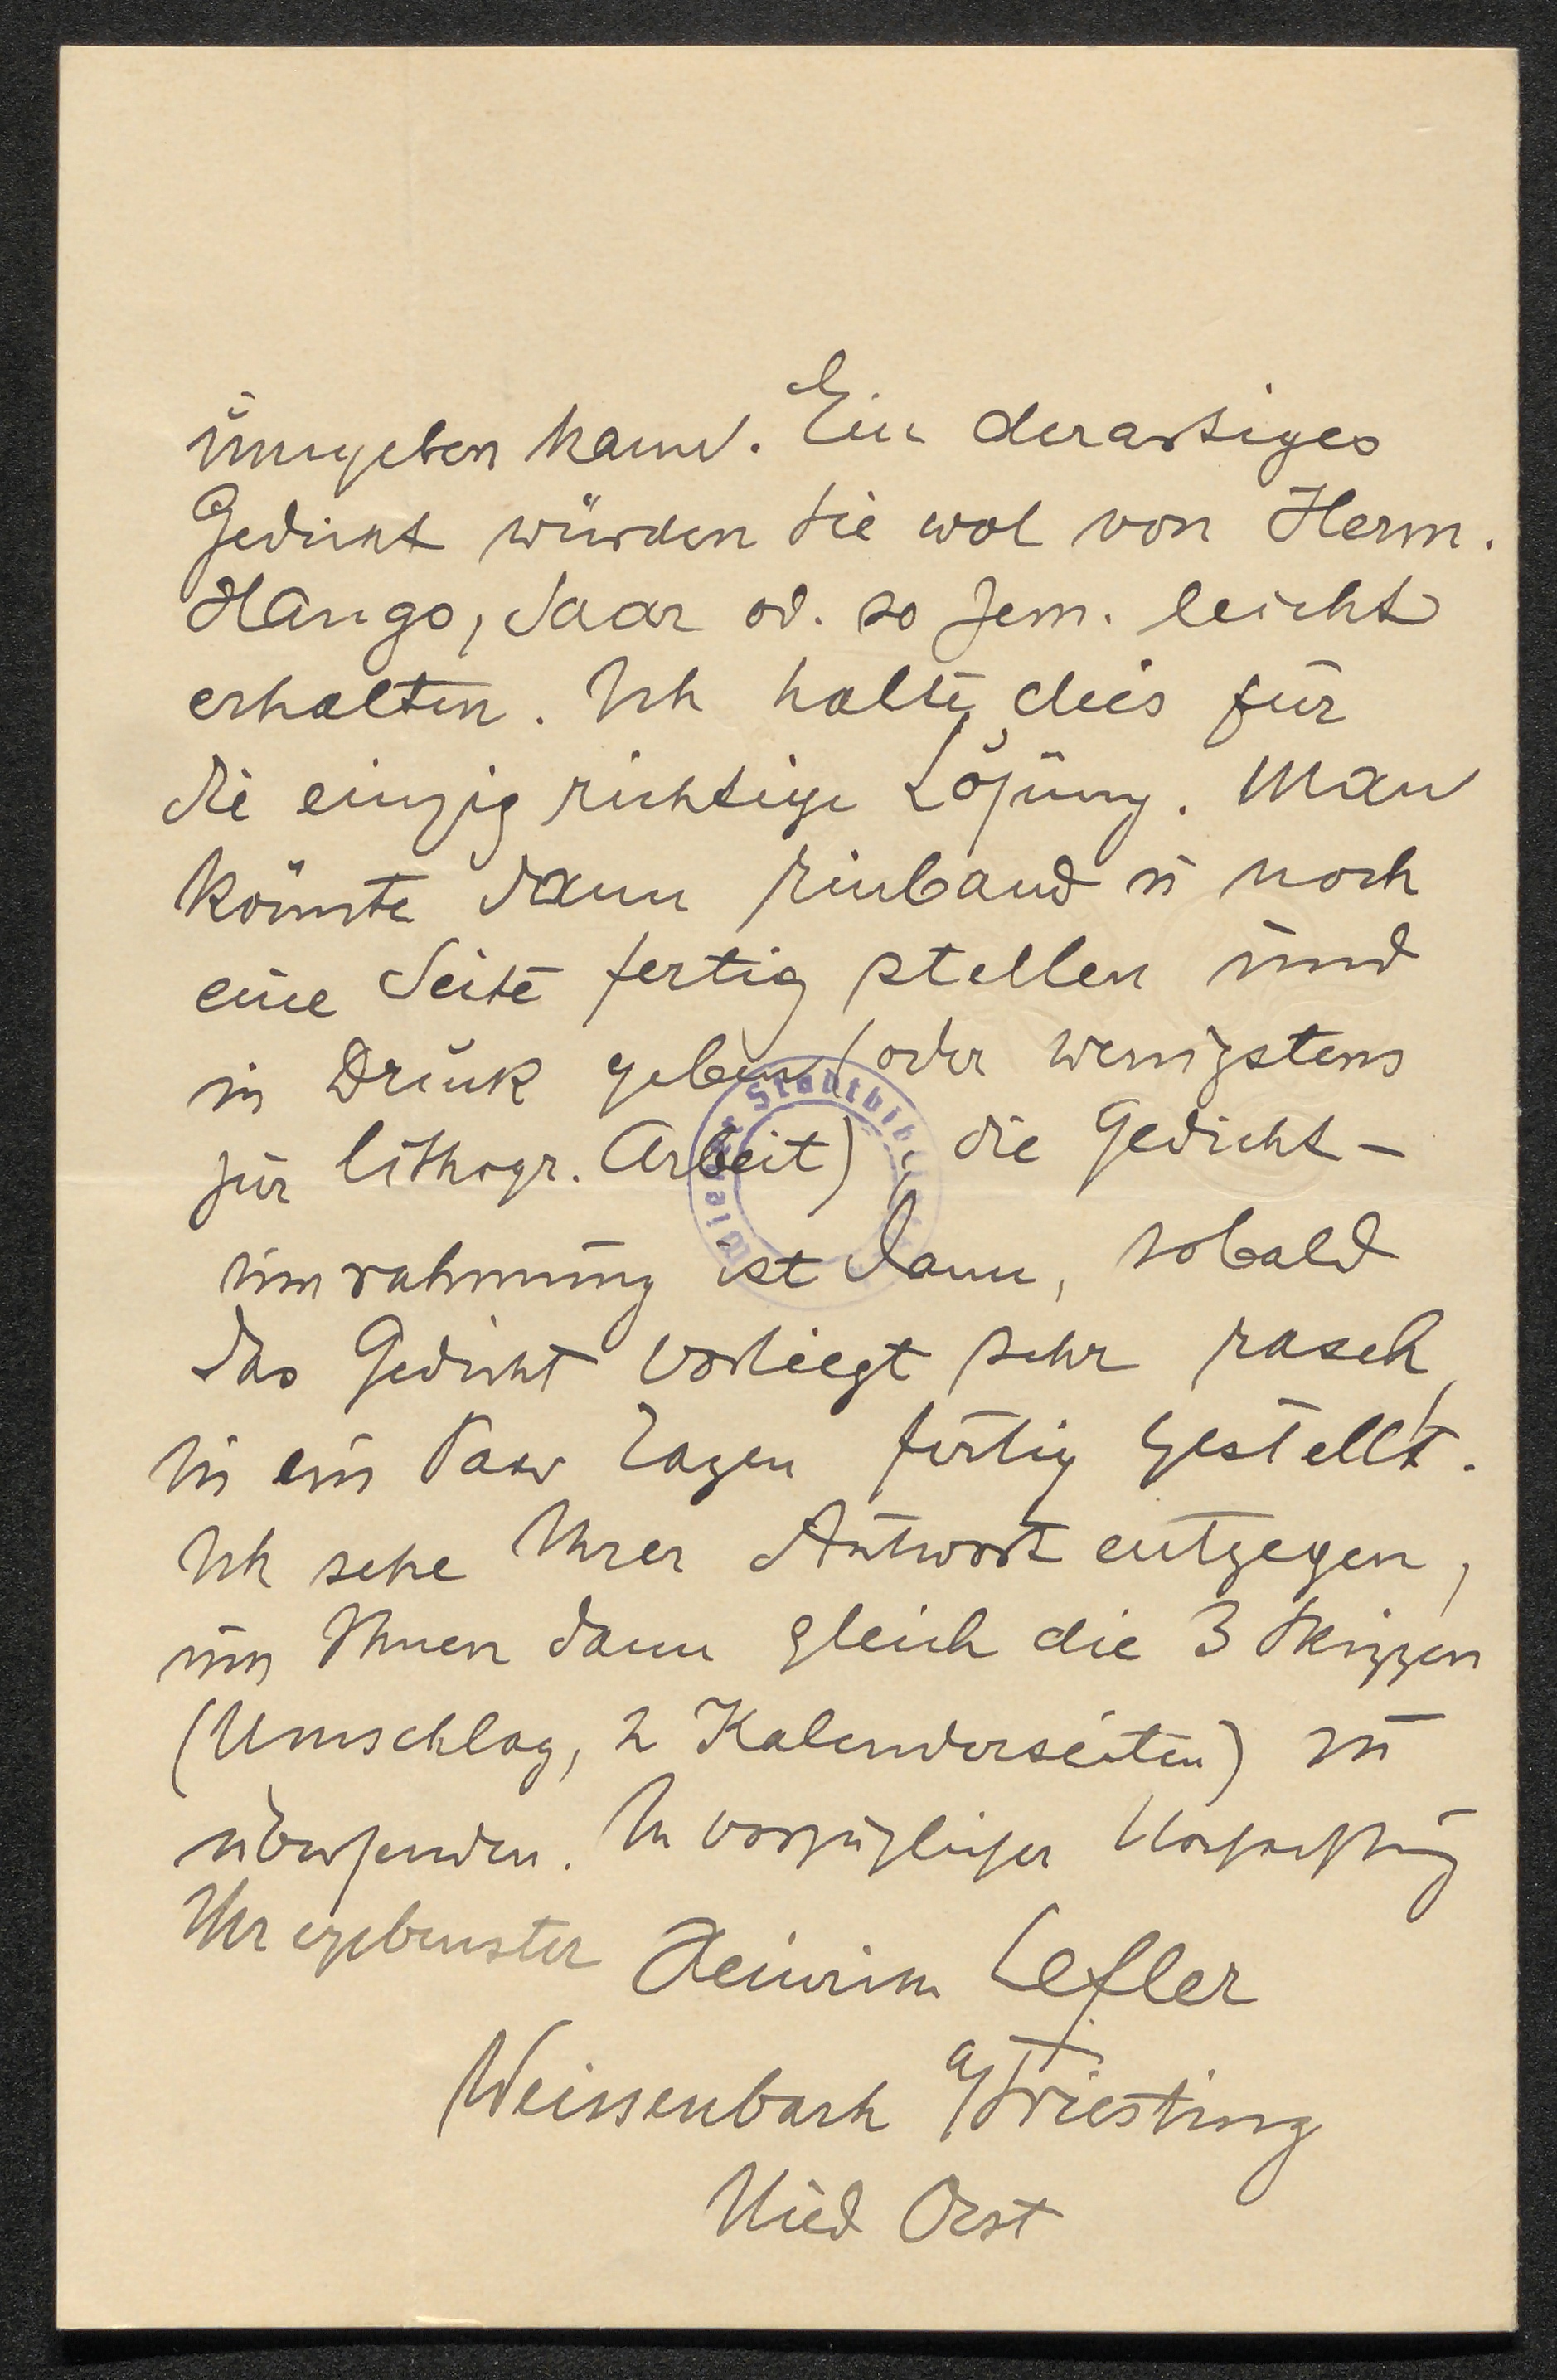 umgeben kann. Ein derartiges
Gedicht würden Sie wol von Herm.
Hango, Saar od. so Jem. leicht
erhalten. Ich halte dies für
die einzig richtige Lösung. Man
könnte dann Einband u noch
eine Seite fertig stellen und
in Druck geben (oder wenigstens
zur lithogr. Arbeit), die Gedicht-
umrahmung ist dann, sobald
das Gedicht vorliegt sehr rasch,
in ein Paar Tagen fertig gestellt.
Ich sehe Ihrer Antwort entgegen,
um Ihnen dann gleich die 3 Skizzen
(Umschlag, 2 Kalenderseiten) zu
übersenden. In vorzüglicher Hochachtung
Ihr ergebenster Heinrich Lefler
Weissenbach a/Triesting
Nied Oest
Wiener Stadtbib